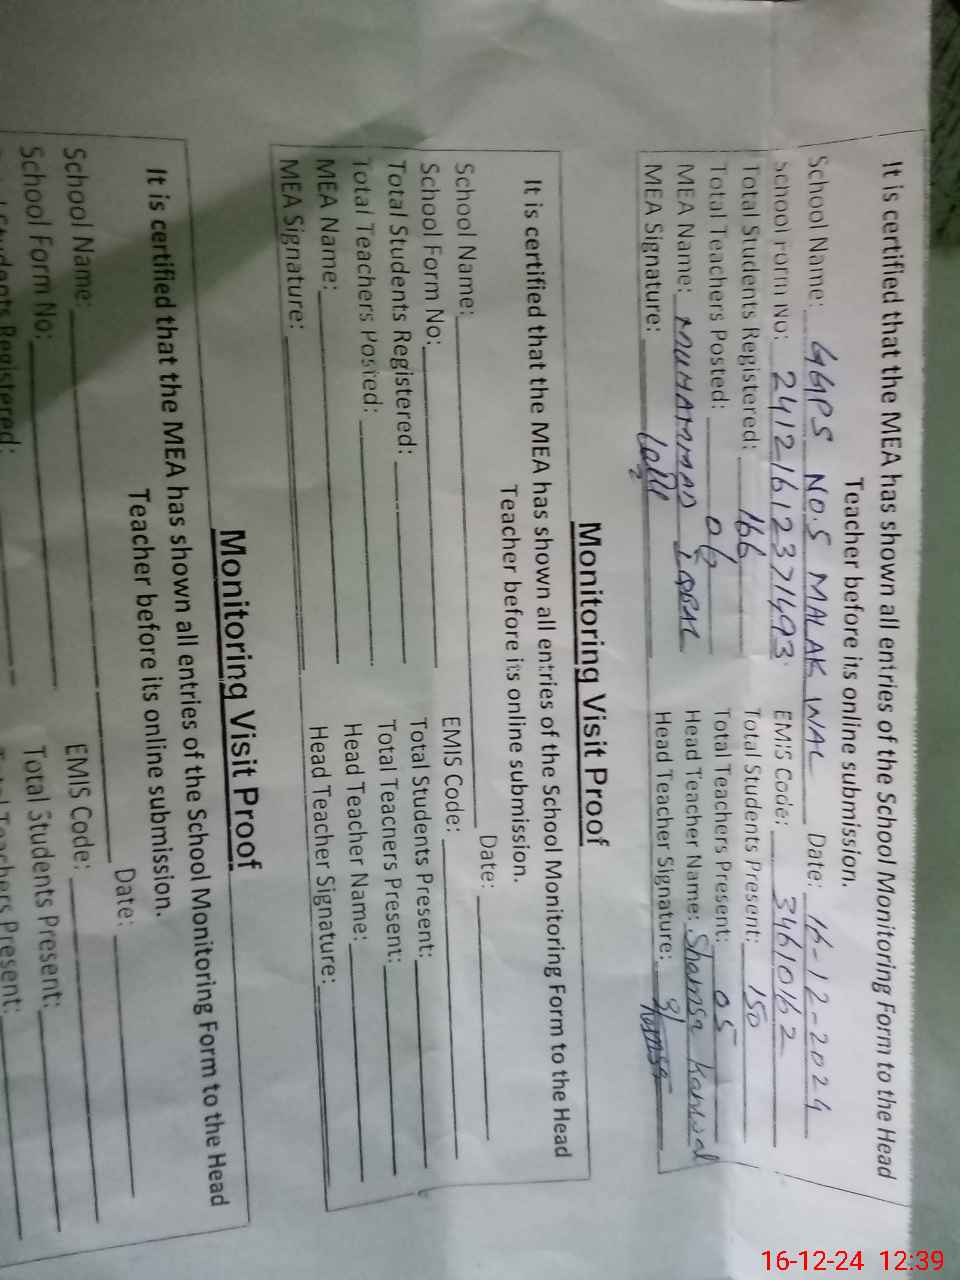 It is certified that the MEA has shown all entries of the School Monitoring Form to the Head
Teacher before its online submission.
School Name: GGPS NO.5 MALAK WAL Date: 16-12-2024
School Form No: 24121612371493 EMIS Code: 34610162
Total Students Registered: 166 Total Students Present: 150
Total Teachers Posted: Total Teachers Present: 05
MEA Name: MUHAMMAD IQBAL Head Teacher Name: Shamsa Kanwal
MEA Signature: Head Teacher Signature: Shamsa
Monitoring Visit Proof
It is certified that the MEA has shown all entries of the School Monitoring Form to the Head
Teacher before its online submission.
School Name: Date:
School Form No: EMIS Code:
Total Students Registered: Total Students Present:
Total Teachers Posted: Total Teachers Present:
MEA Name: Head Teacher Name:
MEA Signature: Head Teacher Signature:
Monitoring Visit Proof
It is certified that the MEA has shown all entries of the School Monitoring Form to the Head
Teacher before its online submission.
School Name: Date:
School Form No: EMIS Code:
Students Registered: Total Students Present:
Teachers Present:
16-12-24 12:39